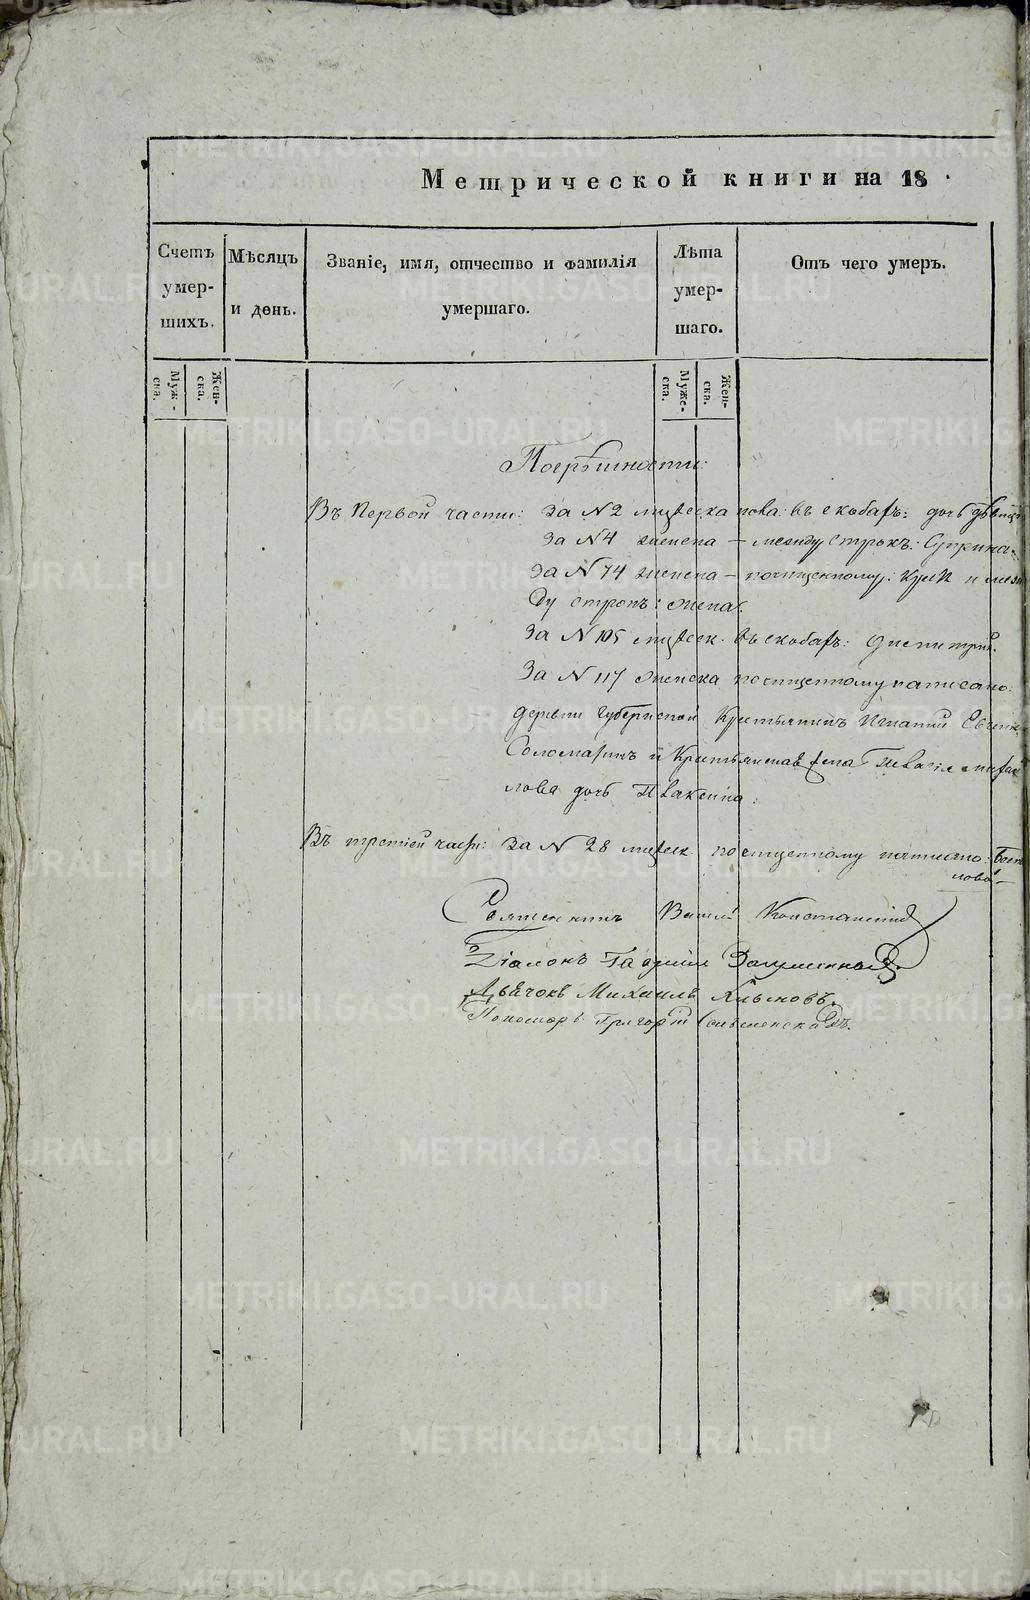 Метрической книги на 18
Счетъ умер-шихъ.
Мѣсяцъ и день.
Званіе, имя, отчество и фамилія умершаго.
Лѣта умер-шаго.
Отъ чего умеръ.
Муж-ска.
Жен-ска.
Муже-ска.
Жен-ска.
Погрѣшности:
Въ первой части: за N 2 мужеска пола въ скобахъ: дочь
за N 4 женска – между строкъ:
за N 74 женска – почищенному: и меж
ду строкъ: жена.
за N 105 мужеск. въ скобахъ: Димитрий.
за N 117 женска почищенному написано:
деревни Губернской Крестьянинъ Игнатий
Соломатинъ и Крестьянская
лова дочь
Въ третией части: за N 28 мужеск почищенному написано:
лова –
Священникъ Константинов
Діаконъ Гавриил
Дьячокъ Михаилъ Клыковъ.
Пономарь Григорій
METRIKI.GASO-URAL.RU